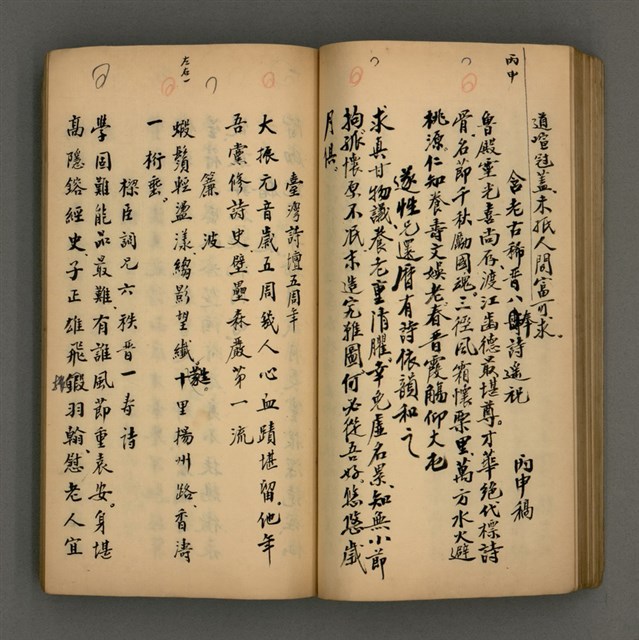 丙申
道喧冠蓋未抵人間富可求
含老古稀晋八
詩遥祝
丙申稿
魯殿靈光喜尚存渡江齒德最堪尊。才華絕代標詩
骨名節千秋勵國魂三徑風霜懷栗里萬方水火避
桃源仁知養壽文娛老春晋霞觴仰大老
遂性兄還曆有詩依韻和之
求真甘物議養老重清臞幸免虛名累知無小節
拘孤懷原不泯未造完雅圖何必從吾好悠悠歲
月俱
左右一
臺灣詩壇五周年
大振元音歲五周幾人心血蹟堪留他年
吾黨修詩史壁壘森嚴第一流
簾波
蝦鬚輕盪漾縐影望纖十里揚州路香濤
一桁垂。
樑臣詞兄六秩晋一壽詩
學固難能品最難有誰風節重袁安。身堪
高隱鎔經史子正雄飛鍛羽翰慰老人宜